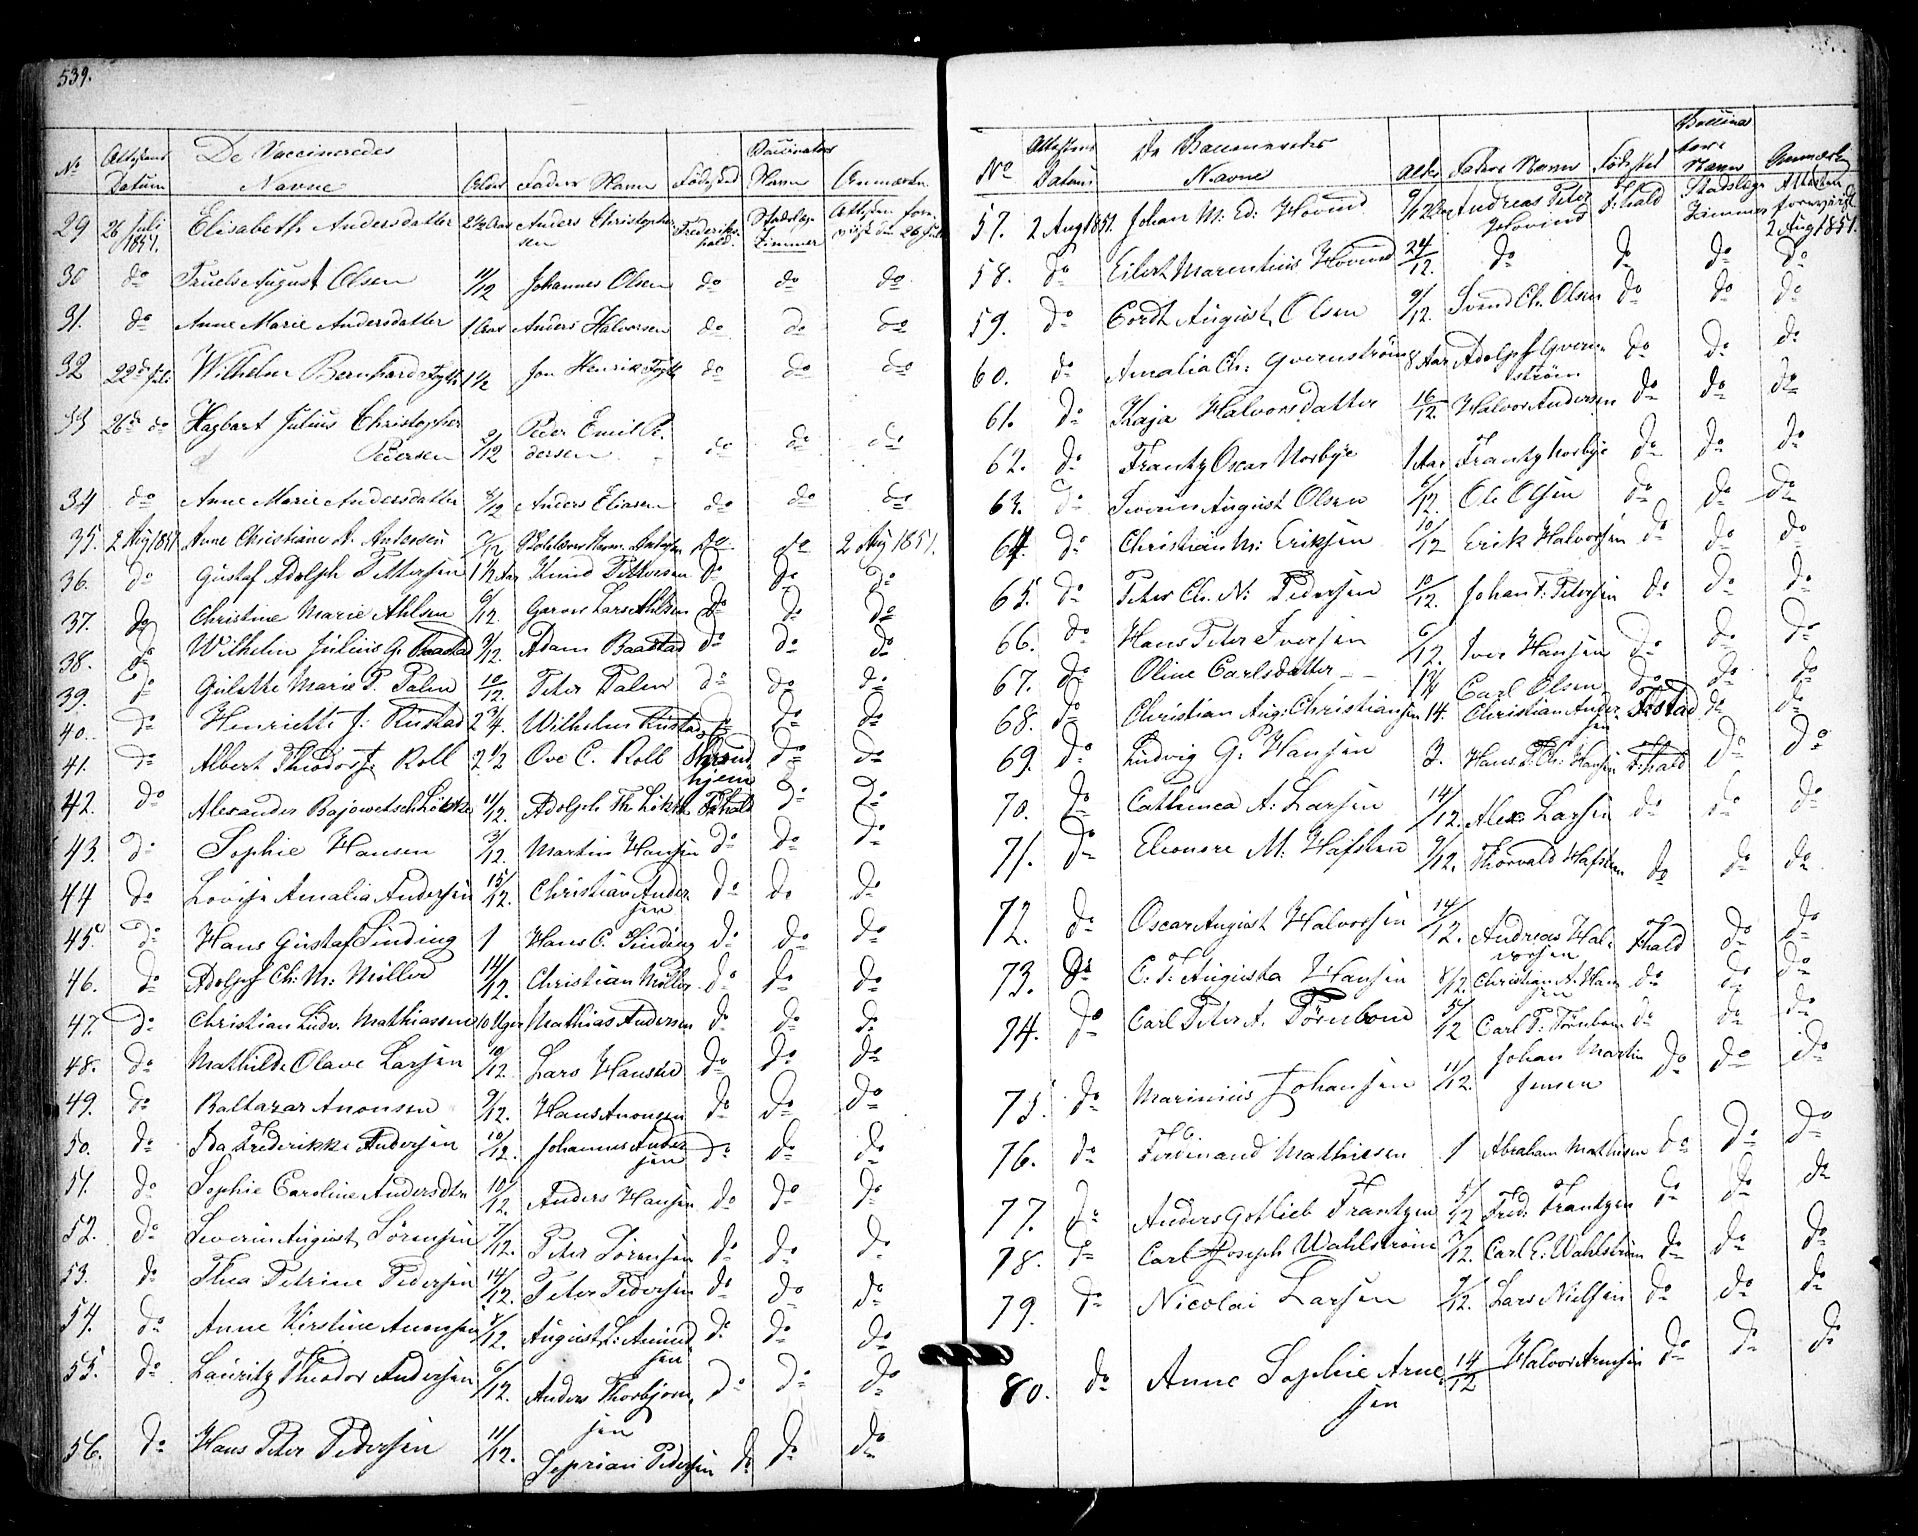 539.
No Attestens Datum De Vaccineredes Navne Alder Faders Navn Fødested Vaccinators Navn Anmærkn
29 26 Juli 1851. Elisabeth Andersdatter 2½ Aar Anders Christophersen Frederikshald. Stadslæge Zimmer Attesten forevist den 26 Juli
30 do Truels August Olsen 11/12 Johannes Olsen do do do
31. do Anne Marie Andersdatter 1 Aar Anders Halvorsen do do do
32 22de Juli Wilhelm Bernhard 1½ Jon Henrik do do do
33 26de do Hagbart Julius Christopher Pedersen 9/12 Peder Emil Pedersen do do do
34 do Anne Marie Andersdatter 8/12 Anders Eliasen do do do
35. 2 Aug 1851 Anne Christiane A. Andersen 7/12 do do 2 Aug 1851.
36. do Gustaf Adolph Pettersen 1½ Aar Knud Pettersen do do do
37. do Christine Marie Ahlsen 6/12 Garver Lars Ahlsen do do do
38. do Wilhelm Julius G. Baastad 9/12. Adam Baastad do do do
39. do Gulette Marie P. Palen 10/12. Peter Palen do do do
40. do Henriette J: Rustad 2¾ Wilhelm Rustad do do do
41. do Albert Theodor Roll 2½ Ove C. Roll Throndhjem do do
42. do Alexander Løkke 11/12. Adolph Th. Løkke Fhald do do
43. do Sophie Hansen 3/12. Martin Hansen do do do
44 do Lovise Amalia Andersen 15/12. Christian Andersen do do do
45. do Hans Gustaf Sinding 1 Hans C. Sinding do do do
46. do Adolph Ch: M: Møller 14/12. Christian Møller do do do
47. do Christian Ludv. Mathiassen 10 Uger Mathias Andersen do do do
48. do Mathilde Olave Larsen 10/12. Lars Hansen do do do
49. do Baltazar Anonsen 9/12. Hans Anonsen do do do
50. do Ida Frederikke Andersen 10/12. Johannes Andersen do do do
51. do Sophie Caroline Andersdtr 10/12. Anders Hansen do do do
52. do Severin August Sørensen 7/12. Peter Sørensen do do do
53. do Thea Petrine Pedersen 14/12. Peter Pedersen do do do
54. do Anne Kirstine Amonsen 8/12. August L: Amundsen do do do
55. do Lauritz Theodor Andersen 6/12. Anders Thorbjørnsen do do do
56. do Hans Peter Pedersen 11/12. Seprian Pedersen do do do
No Attestens Datum De Vaccineredes Navne Alder Faders Navn Fødested Vaccinatore Navn Anmærkn
57. 2 Aug 1851. Johan M: Ed: Hovind 9/12 Andreas Peter Hovind F:hald Stadslæge Zimmer Attesten forevist 2 Aug 1851.
58. do Eilert Marentius Hovind 24/12. do do do do
59. do Cordt August Olsen 9/12. Svend Ch. Olsen do do do
60. do Amalia Ch: Qvernstrøm 8 Aar Adolph Qvernstrøm do do do
61. do Kaja Halvorsdatter 16/12. Halvor Andersen do do do
62. do Frantz Oscar Norbye 1 Aar Frantz Norbye do do do
63. do Severin August Olsen 5/12. Ole Olsen do do do
64. do Christian M: Eriksen 10/12 Erik Halvorsen do do do
65. do Peter Ch. N: Pedersen 10/12. Johan P: Petersen do do do
66. do Hans Peter Iversen 6/12. Iver Hansen do do do
67. do Oline Carlsdatter 1¼ Carl Olsen do do do
68. do Christian Aug: Christiansen 14. Christian Andersen do do
69. do Ludvig G: Hansen 3. Hans P. Ch: Hansen F:hald do do
70. do Cathinca A: Larsen 14/12. Alex: Larsen do do do
71. do Eleonore M: Hafsten 9/12. Thorvald Hafsten do do do
72. do Oscar August Halvorsen 14/12. Andreas Halvorsen Fhald do do
73. do C. P. Augusta Hansen 8/12. Christian A. Hansen do do do
74. do Carl Peter A. Tørnbom 5/12 Carl P: Tørnbom do do do
75. do Marinius Johansen 11/12. Johan Martin Jensen do do do
76. do Ferdinand Mathiesen 1 Abraham Mathisen do do do
77. do Anders Gotlieb Frantzen 5/12 Fred: Frantzen do do do
78. do Carl Joseph Wahlstrøm 3/12. Carl E: Wahlstrøm do do do
79. do Nicolai Larsen 7/12. Lars Nielsen do do do
80. do Anne Sophie Arnesen 14/12 Halvor Arnesen do do do